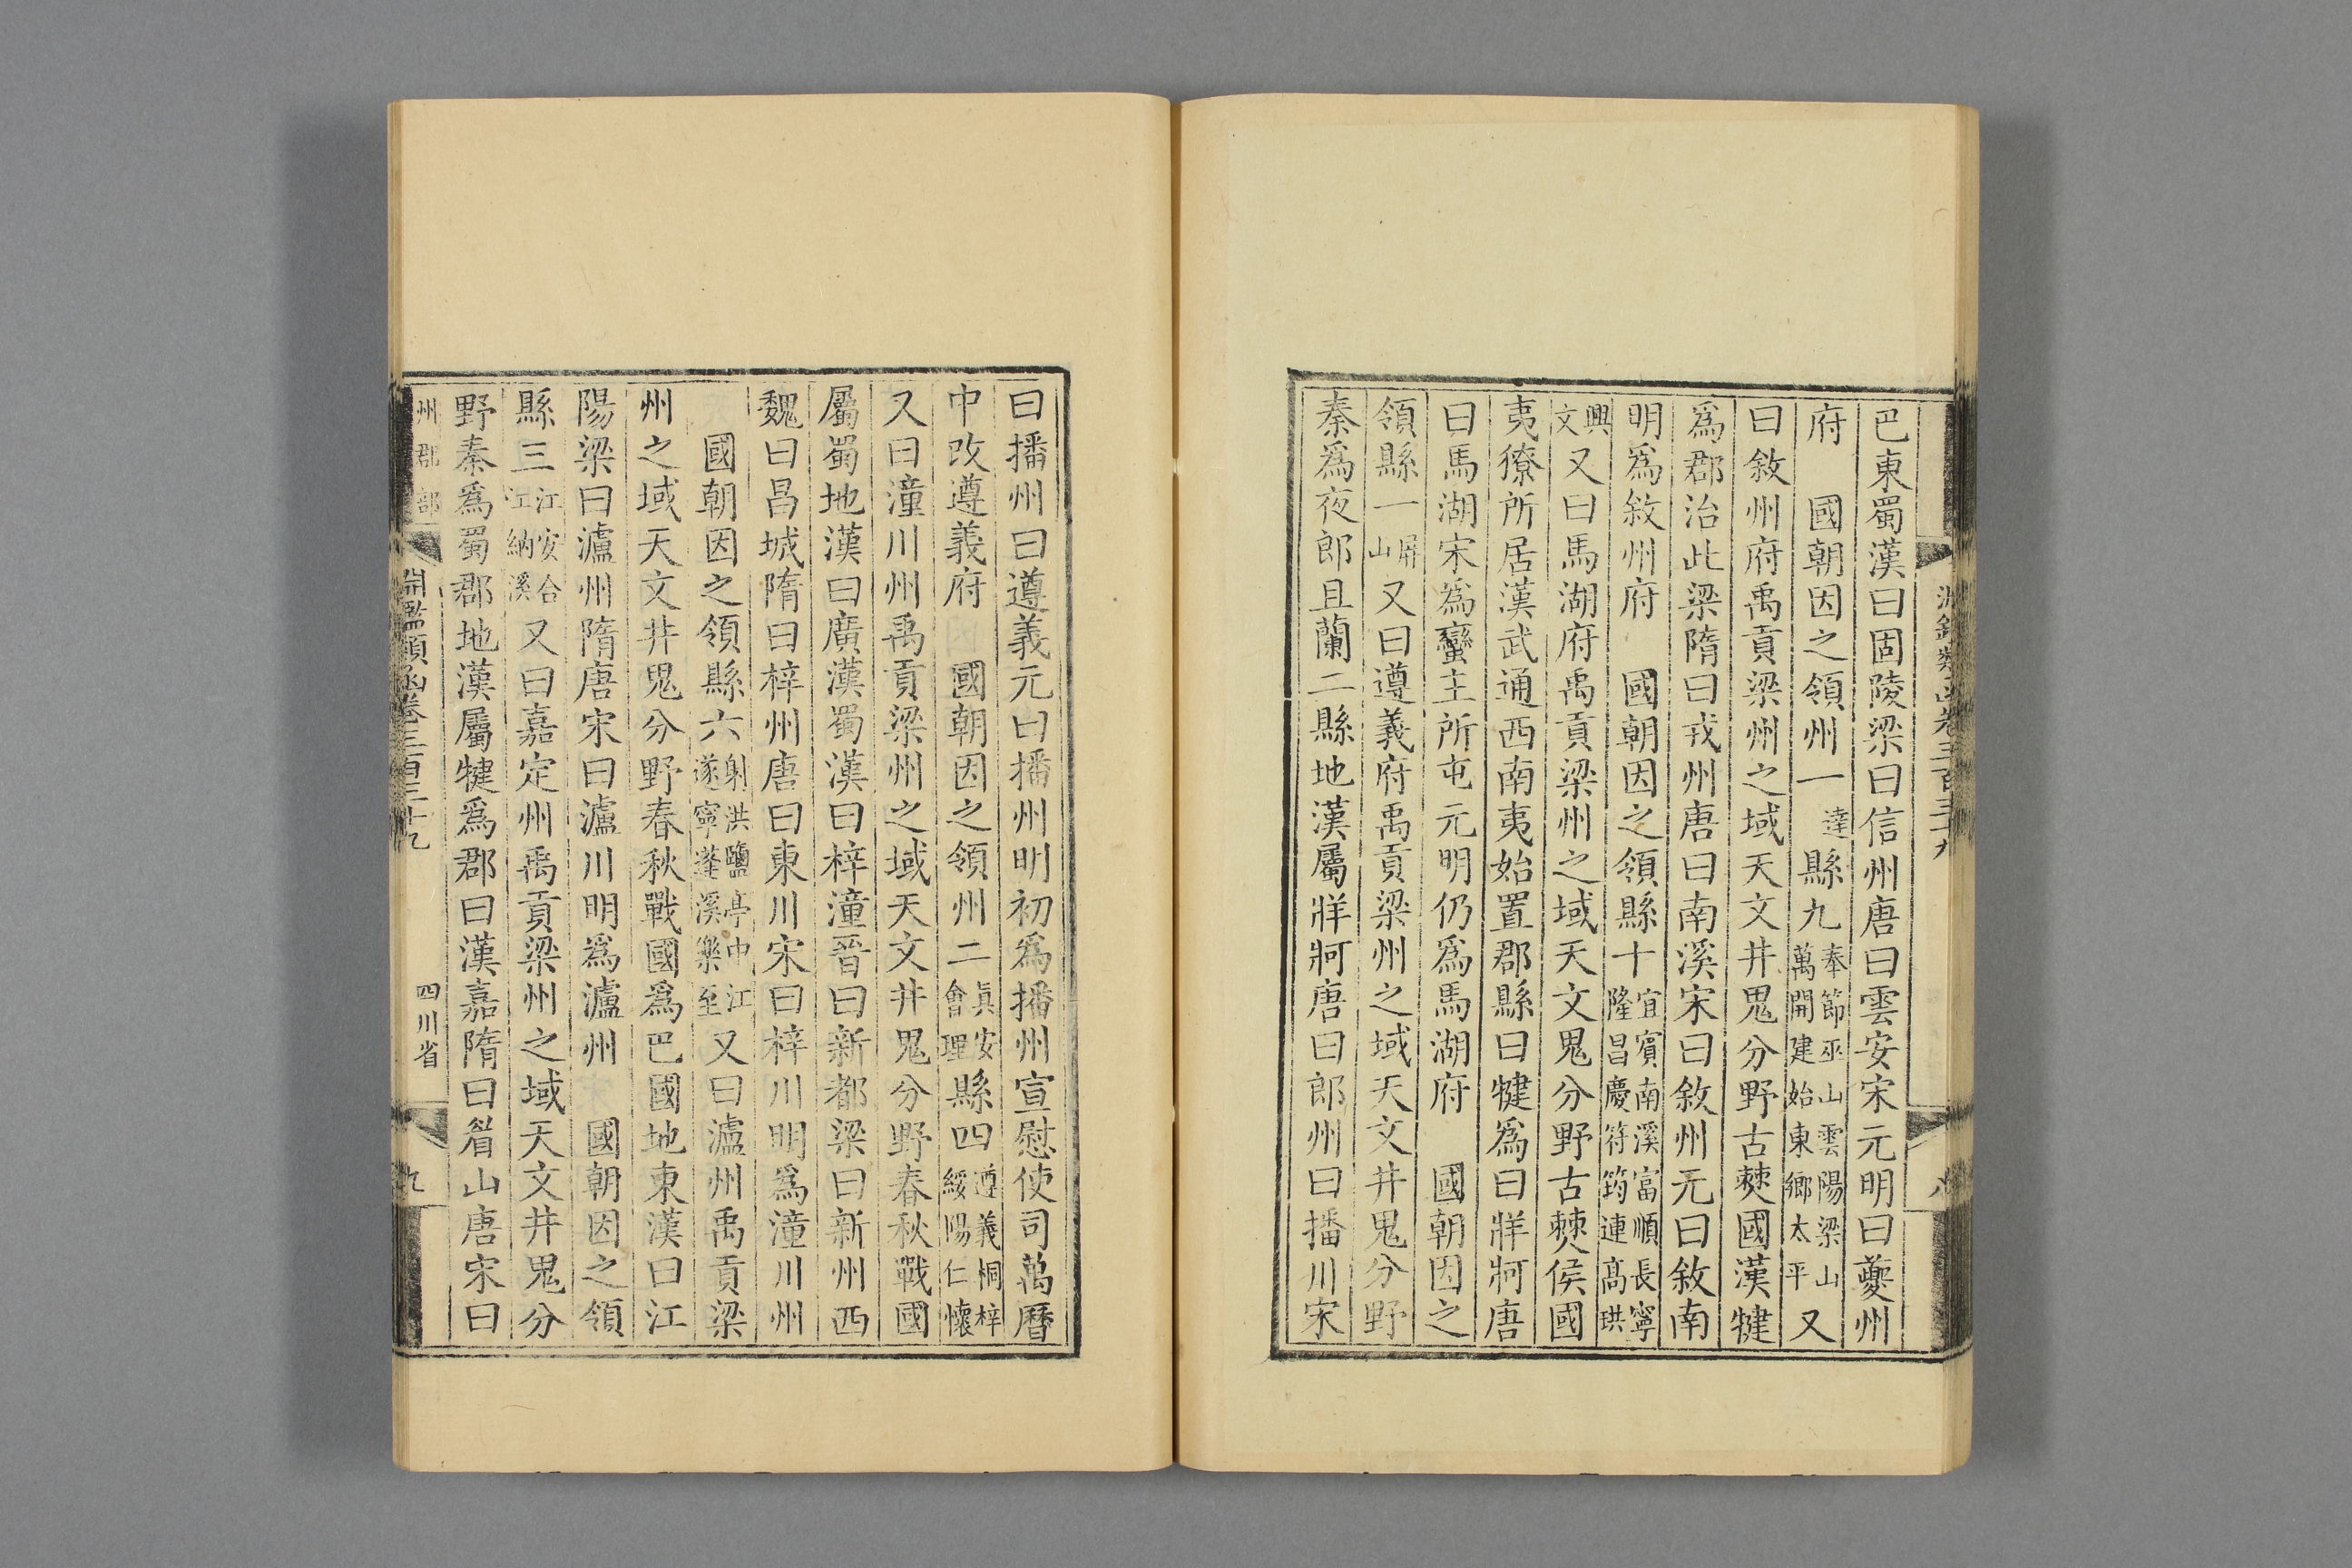 巴東蜀漢曰固陵梁曰信州唐曰雲安宋元明曰夔州
府　國朝因之領州一達縣九奉節巫山雲陽梁山萬開建始東鄉太平又
曰敘州府禹貢梁州之域天文井鬼分野古僰國漢犍
爲郡治此梁隋曰戎州唐曰南溪宋曰敘州元曰敘南
明爲敘州府　國朝因之領縣十宜賓南溪富順長寧隆昌慶符筠連高珙
興文又曰馬湖府禹貢梁州之域天文鬼分野古僰侯國
夷獠所居漢武通西南夷始置郡縣曰犍爲曰牂牁唐
曰馬湖宋爲蠻主所屯元明仍爲馬湖府　國朝因之
領縣一屏山又曰遵義府禹貢梁州之域天文井鬼分野
秦爲夜郎且蘭二縣地漢屬牂牁唐曰郎州曰播川宋
曰播州曰遵義元曰播州明初爲播州宣慰使司萬曆
中改遵義府　國朝因之領州二眞安會理縣四遵義桐梓綏陽仁懷
又曰潼川州禹貢梁州之域天文井鬼分野春秋戰國
屬蜀地漢曰廣漢蜀漢曰梓潼晉曰新都梁曰新州西
魏曰昌城隋曰梓州唐曰東川宋曰梓川明爲潼川州
國朝因之領縣六射洪鹽亭中江遂寧蓬溪樂至又曰瀘州禹貢梁
州之域天文井鬼分野春秋戰國爲巴國地東漢曰江
陽梁曰瀘州隋唐宋曰瀘川明爲瀘州　國朝因之領
縣三江安合江納溪又曰嘉定州禹貢梁州之域天文井鬼分
野秦爲蜀郡地漢屬犍爲郡曰漢嘉隋曰眉山唐宋曰
州郡部
淵鑑類函卷三百三十九
四川省
九